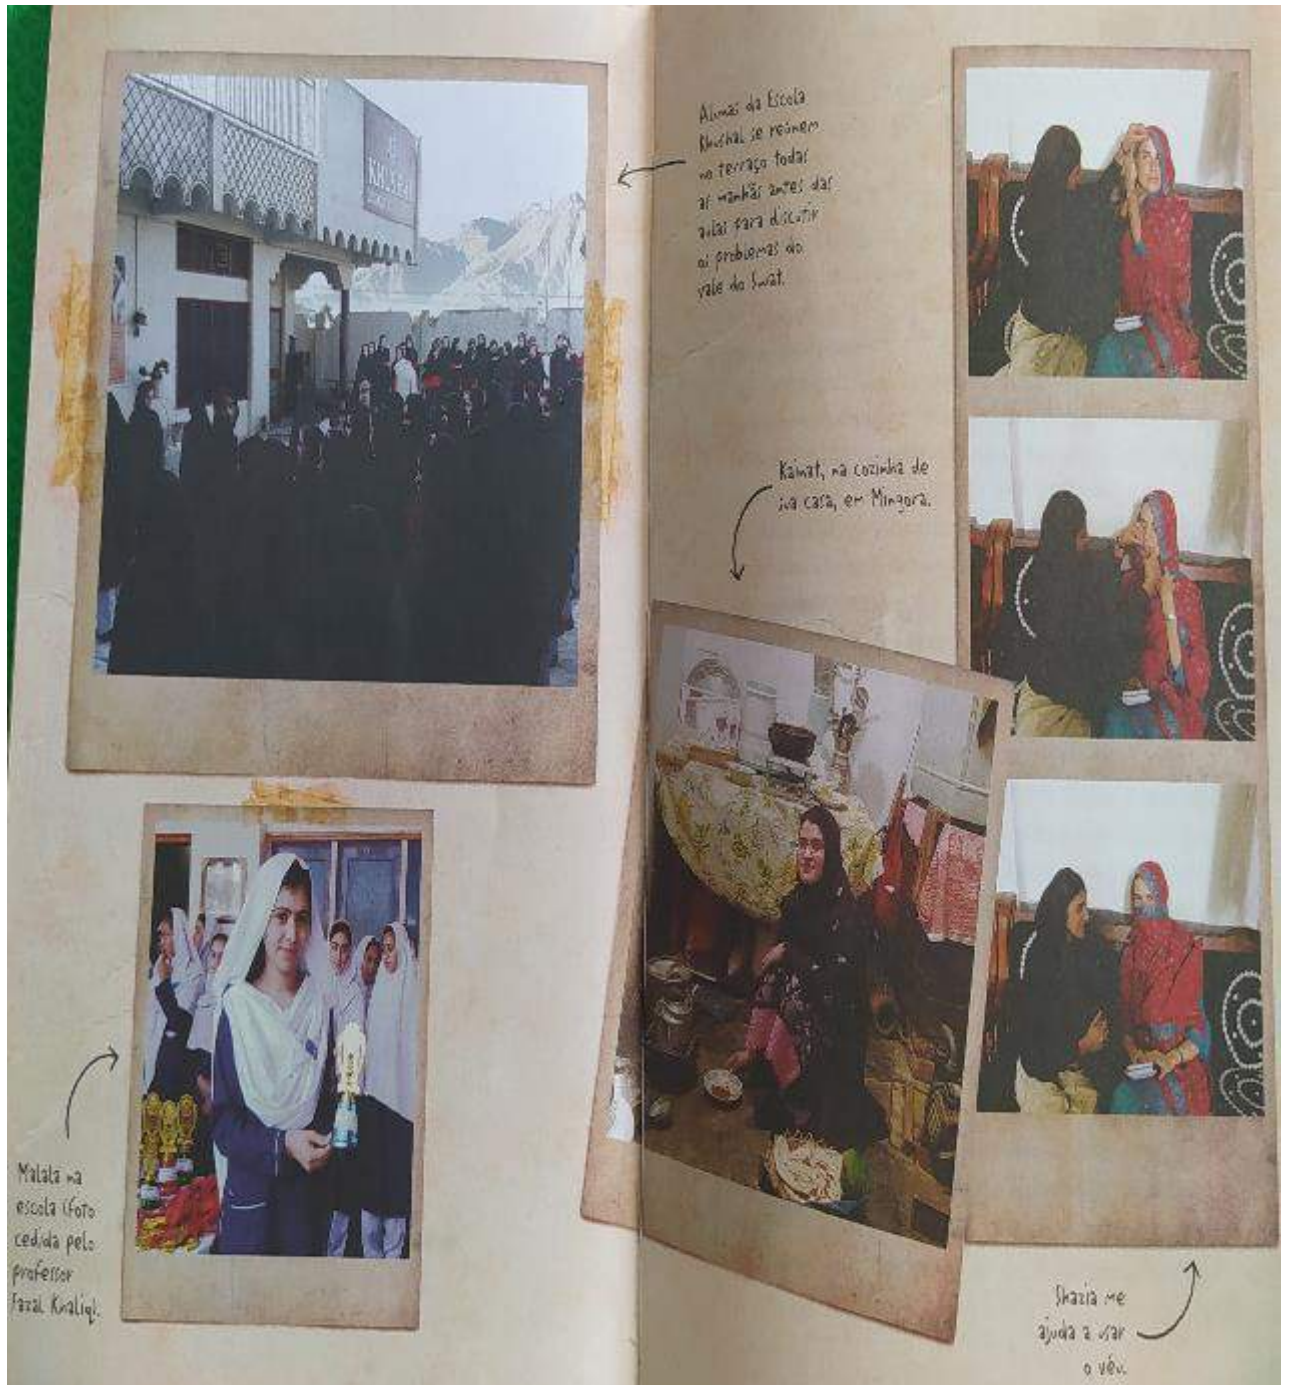 KHUSHAL
Alunas da Escola
Khushal se reúnem
no terraço todas
as manhãs antes das
aulas para discutir
os problemas do
vale do Swat.
Kainat, na cozinha de
sua casa, em Mingora.
Malala na
escola (foto
cedida pelo
professor
Fazal Khaliq).
Shazia me
ajuda a usar
o véu.